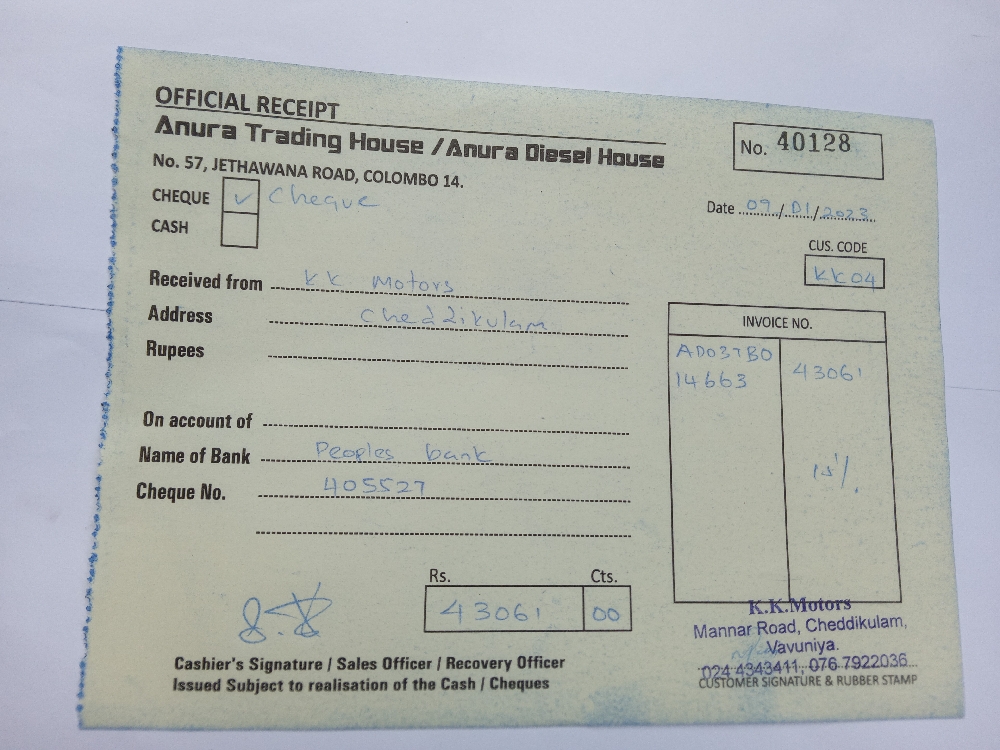 OFFICIAL RECEIPT
Anura Trading House / Anura Diesel House
No. 57, JETHAWANA ROAD, COLOMBO 14.
No. 40128
CHEQUE ✓ Cheque
CASH
Date 09/01/2023
CUS. CODE
KK04
Received from KK Motors
Address Cheddikulam
Rupees
INVOICE NO.
AD037B0
14663 43061
On account of
Name of Bank Peoples bank
Cheque No. 405527
15%
Rs. Cts.
43061 00
K.K.Motors
Mannar Road, Cheddikulam,
Vavuniya.
024 4343411, 076 7922036
CUSTOMER SIGNATURE & RUBBER STAMP
Cashier's Signature / Sales Officer / Recovery Officer
Issued Subject to realisation of the Cash / Cheques